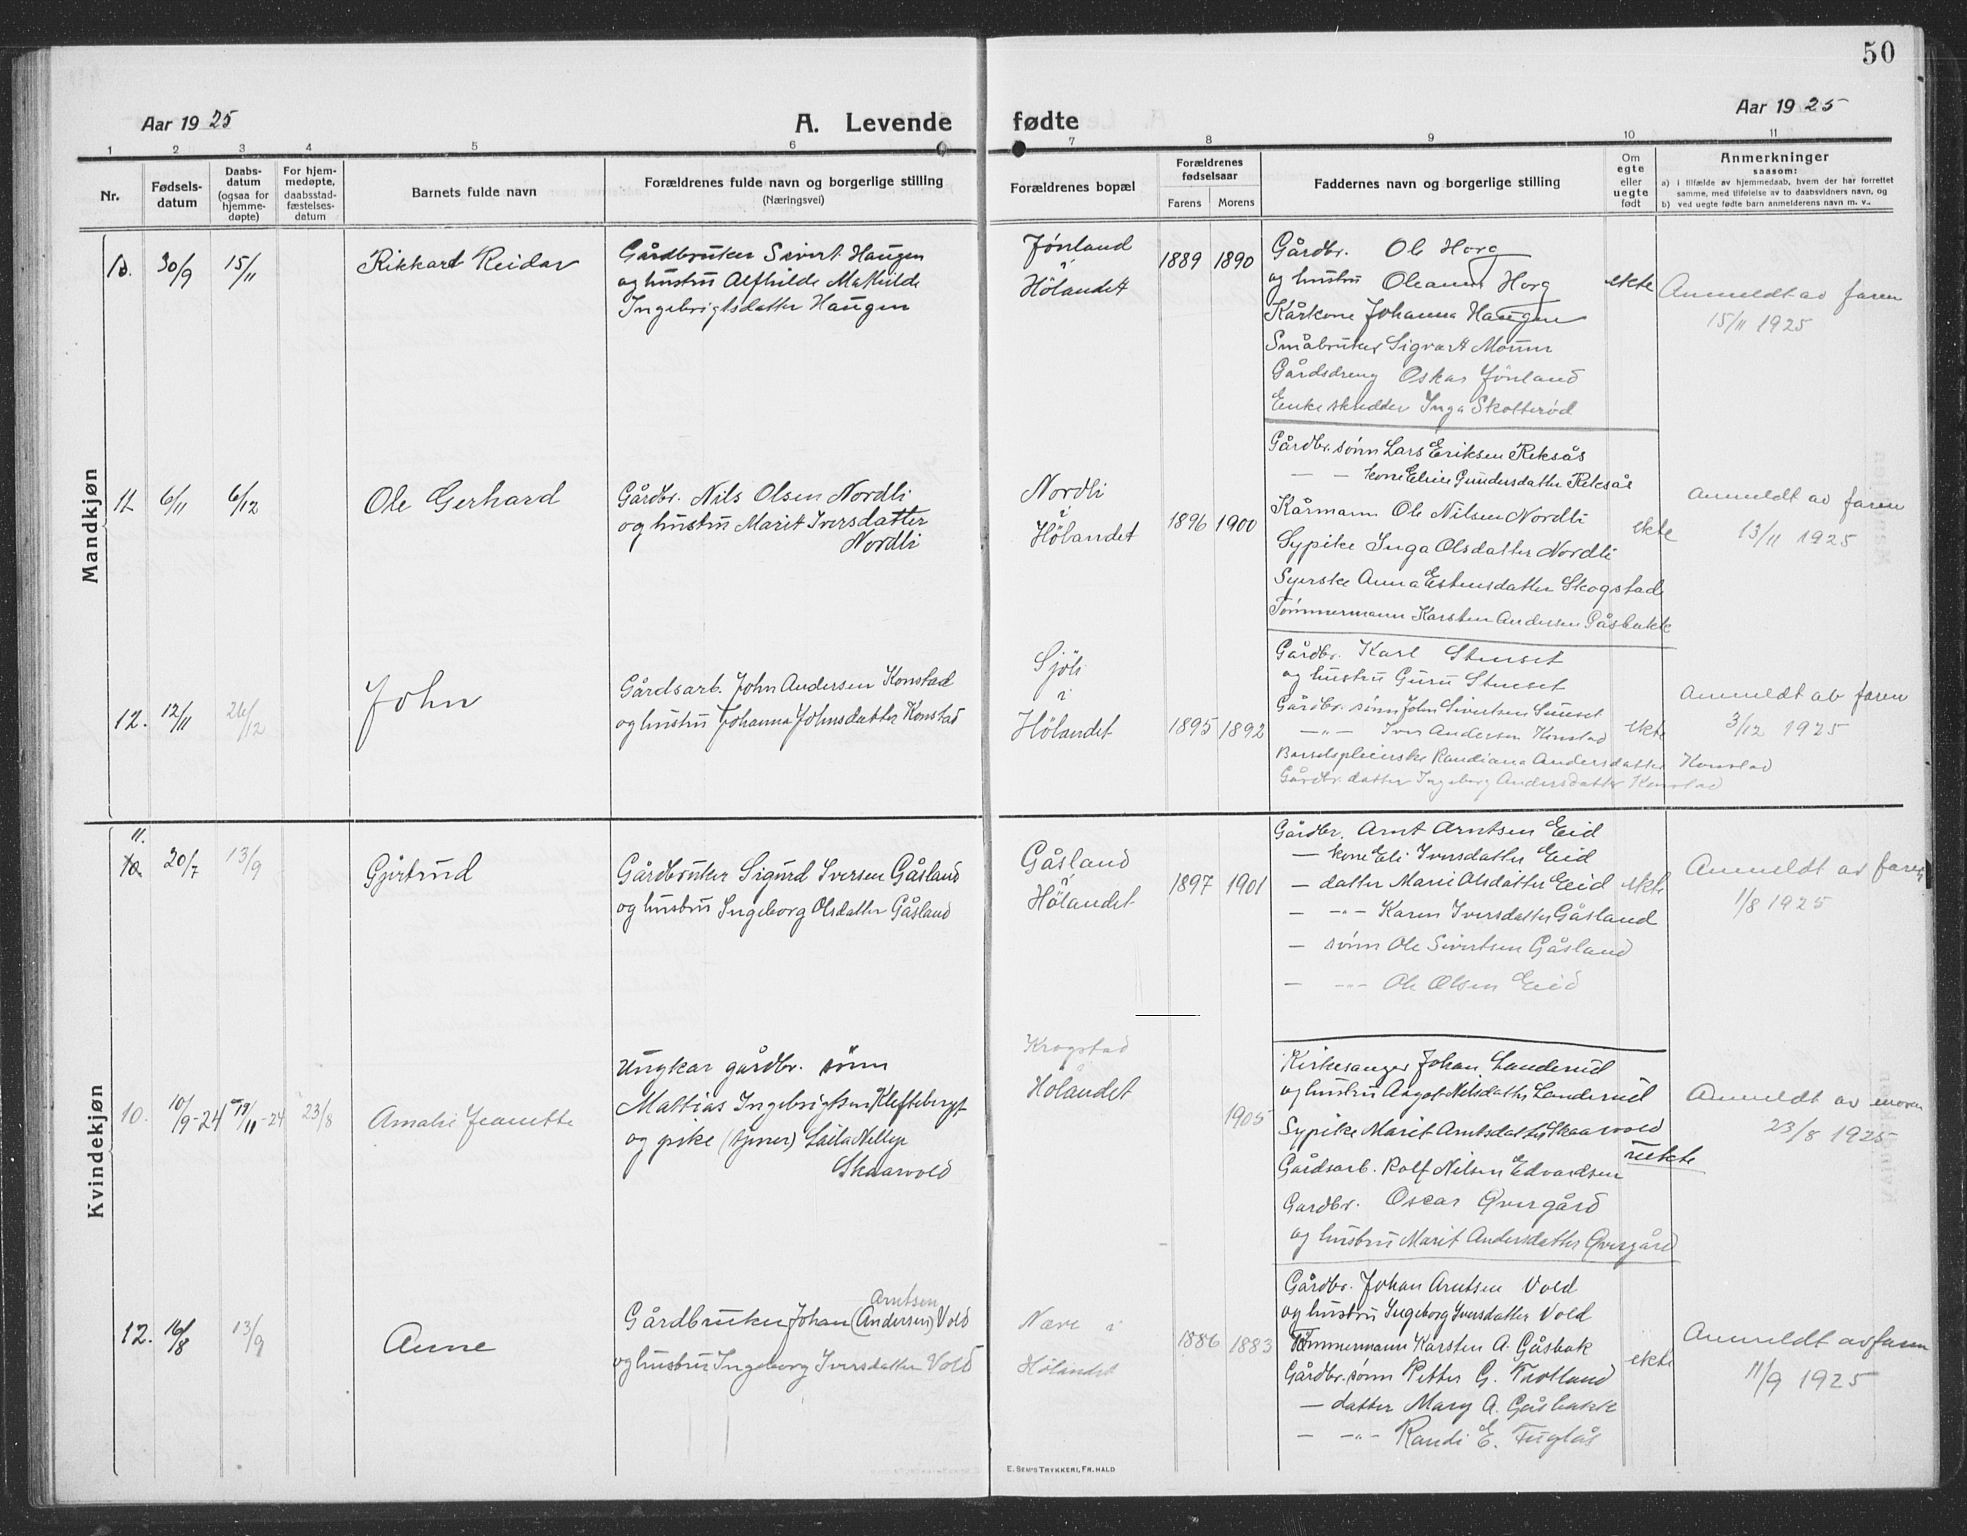 50
Aar 1925
A. Levende fødte
Aar 1925
1 2 3 4 5 6 7 8 9 10 11
Nr.
Fødsels-
datum
Daabs-
datum
(ogsaa for
hjemme-
døpte)
For hjem-
medøpte,
daabsstad-
fæstelses-
datum
Barnets fulde navn
Forældrenes fulde navn og borgerlige stilling
(Næringsvei)
Forældrenes bopæl
Forældrenes
fødselsaar
Farens Morens
Faddernes navn og borgerlige stilling
Om
egte
eller
uegte
født
Anmerkninger
saasom:
a) i tilfælde av hjemmedaab, hvem der har forrettet
samme, med tilføielse av to daabsvidners navn, og
b) ved uegte fødte barn anmelderens navn m. v..
Mandkjøn
10. 30/9 15/11 Rikkart Reidar
Gårdbruker Sivert Haugen
og hustru Alfhilde Mathilde
Ingebrigtsdatter Haugen
Jønland
i
Hølandet
1889 1890
Gårdbr. Ole Horg
og hustru Oleanna Horg
Kårkone Johanna Haugen
Småbruker Sigvart Moum
Gårdsdreng Oskar Jønland
Enke skredder Inga Skolterød
ekte
Anmeldt av faren
15/11 1925
11. 6/11 6/12 Ole Gerhard
Gårdbr. Nils Olsen Nordli
og hustru Marit Iversdatter
Nordli
Nordli
i
Hølandet
1896 1900
Gårdbr. sønn Lars Eriksen Reksås
— — kone Elise Gundersdatter Reksås
Kårmann Ole Nilsen Nordli
Sypike Inga Olsdatter Nordli
Syerske Anna Estensdatter Skogstad
Tømmermann Karsten Andersen Gåsbakk
ekte
Anmeldt av faren
13/11 1925
12. 12/11 26/12 John
Gårdsarb. John Andersen Konstad
og hustru Johanna Johnsdatter Konstad
Sjøli
i
Hølandet
1895 1892
Gårdbr. Karl Stenset
og hustru Guru Stenset
Gårdbr. sønn John Sivertsen Sunset
—„— Iver Andersen Konstad
Barselspleierske Randiana Andersdatter Konstad
Gårdbr. datter Ingeborg Andersdatter Konstad
ekte
Anmeldt av faren
3/12 1925
Kvindekjøn
11.
10. 20/7 13/9 Gjertrud
Gårdbruker Sigurd Iversen Gåsland
og hustru Ingeborg Olsdatter Gåsland
Gåsland
i
Hølandet
1897 1901
Gårdbr. Arnt Arntsen Eid
— kone Eli Iversdatter Eid
— datter Marie Olsdatter Eid
— -„- Karen Iversdatter Gåsland
— sønn Ole Sivertsen Gåsland
— -„- Ole Olsen Eid
ekte
Anmeldt av faren
1/8 1925
10. 10/9-24 19/11-24 23/8 Amalie Jeanette
Ungkar gårdbr. sønn
Mattias Ingebrigtsen Kleftebergt
og pike (tjener) Laila Nellye
Skaarvold
Krogstad
Hølandet
1905
Kirkesanger Johan Landerud
og hustru Aagot Nilsdatter Landerud
Sypike Marit Arntsdatter Skaarvold
Gårdsarb. Rolf Nilsen Edvardsen
Gardbr. Oscar Øvergård
og hustru Marit Andersdatter Øvergård
uekte
Anmeldt av moren
23/8 1925
12. 16/8 13/9 Anne
Arntsen
Gårdbruker Johan (Andersen) Vold
og hustru Ingeborg Iversdatter Vold
Nære i
Hølandet
1886 1883
Gårdbr. Johan Arntsen Vold
og hustru Ingeborg Iversdatter Vold
Tømmermann Karsten A. Gåsbak
Gårdbr. sønn Petter G. Frotland
— datter Mary A. Gåsbakk
— -„- Randi E. Fuglås
ekte
Anmeldt av faren
11/9 1925
E. Sem's Trykkeri, Fr. Hald